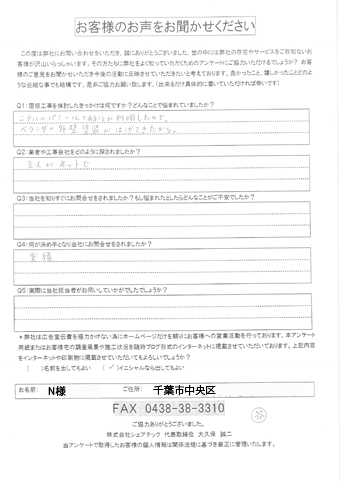 お客様のお声をお聞かせください
この度は弊社にお問い合わせをいただき、誠にありがとうございました。世の中には弊社の存在やサービスをご存知ないお
客様が沢山いらっしゃいます。その方たちに弊社をよく知っていただくためのアンケートにご協力いただけるでしょうか？ お
客様のご意見をお聞かせいただき今後の活動に反映させていただきたいと考えております。良かったこと、嬉しかったことどのよ
うな些細な事でも結構です。是非ご協力お願い致します。（出来るだけ具体的に書いていただければ幸いです）
Q1：屋根工事を検討したきっかけは何ですか？どんなことで悩まれていましたか？
ニチハのパミールであることが判明したので。
ベランダの外壁塗装がはげてきたから。
Q2：業者や工事会社をどのように探されましたか？
主人がネットで
Q3：当社を知りすぐにお問合せをされましたか？もし悩まれたとしたらどんなことがご不安でしたか？
Q4：何が決め手となり当社にお問合せをされましたか？
実績
Q5：実際に当社担当者がお伺いしていかがでしたでしょうか？
＊弊社は広告宣伝費を極力かけない為にホームページだけを頼りにお客様への営業活動を行っております。本アンケート
用紙またはお客様宅の調査風景や施工状況を随時ブログ形式のインターネットに掲載させていただいております。上記内容
をインターネットや印刷物に掲載させていただいてもよろしいでしょうか？
（　）名前を出してもよい　（✓）イニシャルなら出してもよい
お名前： N様　ご住所： 千葉市中央区
FAX 0438-38-3310
ご協力ありがとうございました。
株式会社シェアテック 代表取締役 大久保 誠二
当アンケートで取得したお客様の個人情報は関係法規に基づき厳正に管理いたします。